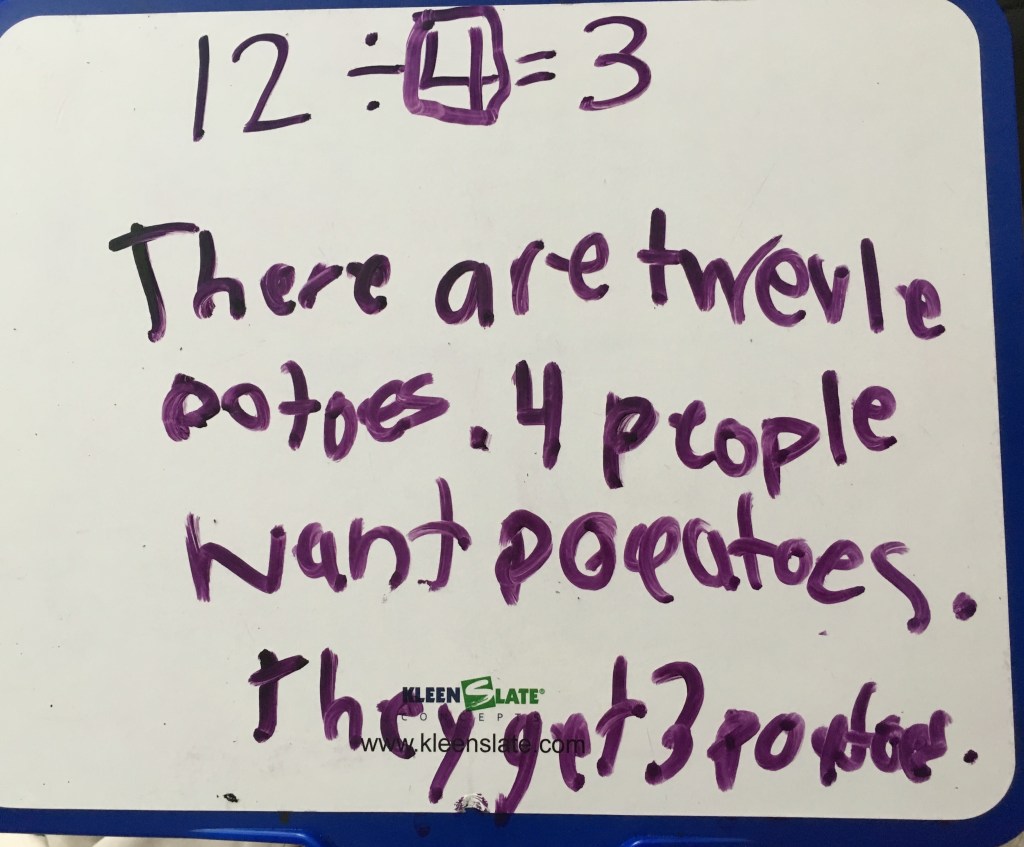 12 ÷ 4 = 3
There are twevle
potoes. 4 people
want popatoes.
They get 3 potatoes.
KLEENSLATE®
CONCEPTS
www.kleenslate.com